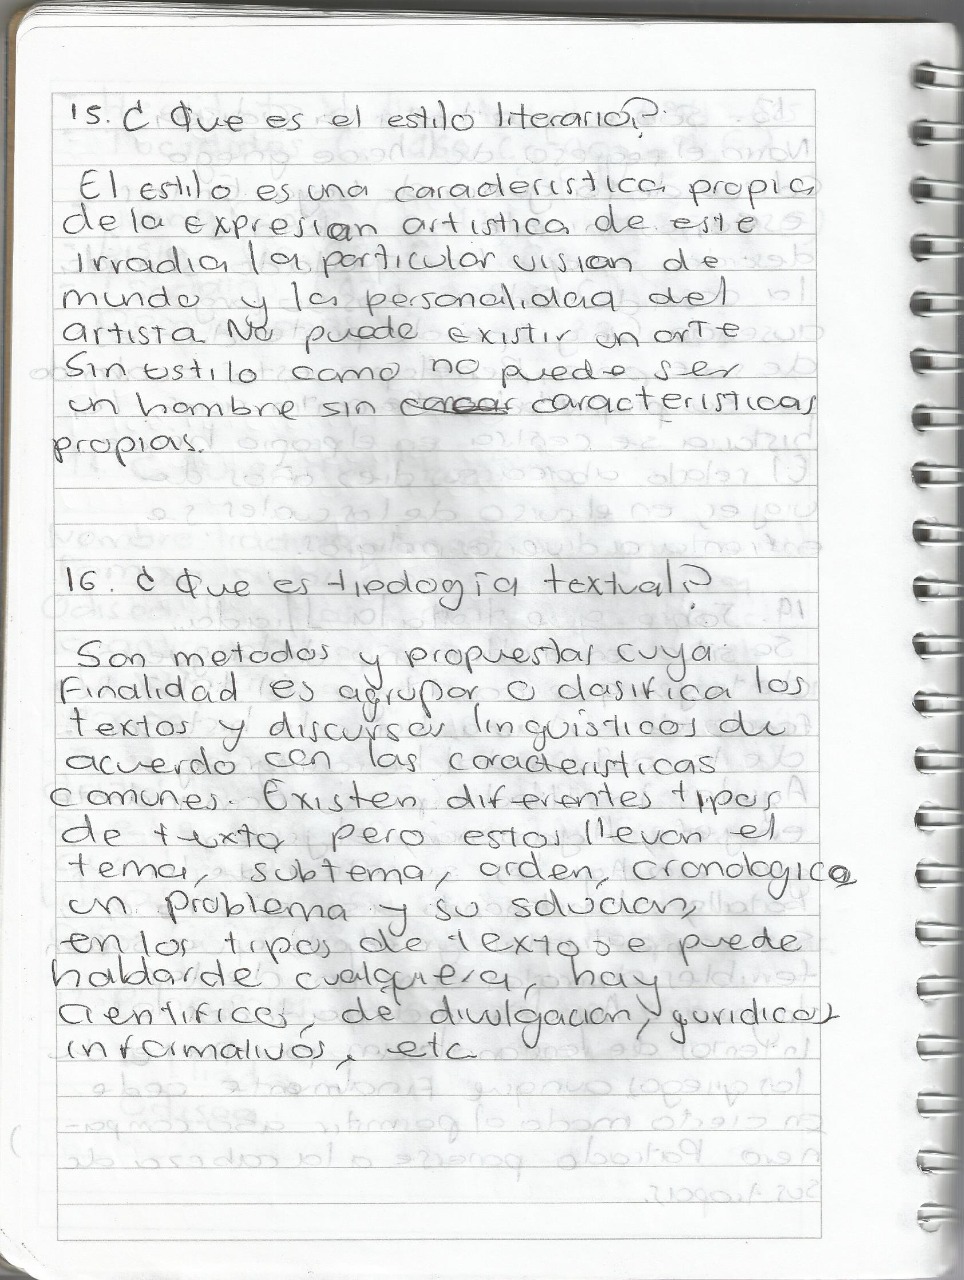 15. ¿Que es el estilo literario?
El estilo es una caracteristica propia
de la expresian artistica de este
irradia la particular visian de
mundo y la personalidad del
artista. No puede existir un arte
Sin estilo como no puede ser
un hombre sin caracteristicas
propias.
16. ¿Que es tipología textual?
Son metodos y propuestas cuya
Finalidad es agrupar o clasifica los
textos y discursos linguisticos de
acuerdo con las caracteristicas
comunes. Existen diferentes tipos
de texto pero estos llevan el
tema, subtema, orden, cronologico
un problema y su solucian,
en los tipos de texto se puede
hablar de cualquiera, hay
Cientificos, de divulgacian, guridicos
informativos, etc